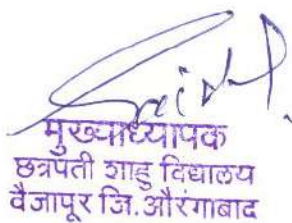 मुख्याध्यापक
छत्रपती शाहु विद्यालय
वैजापूर जि.औरंगाबाद